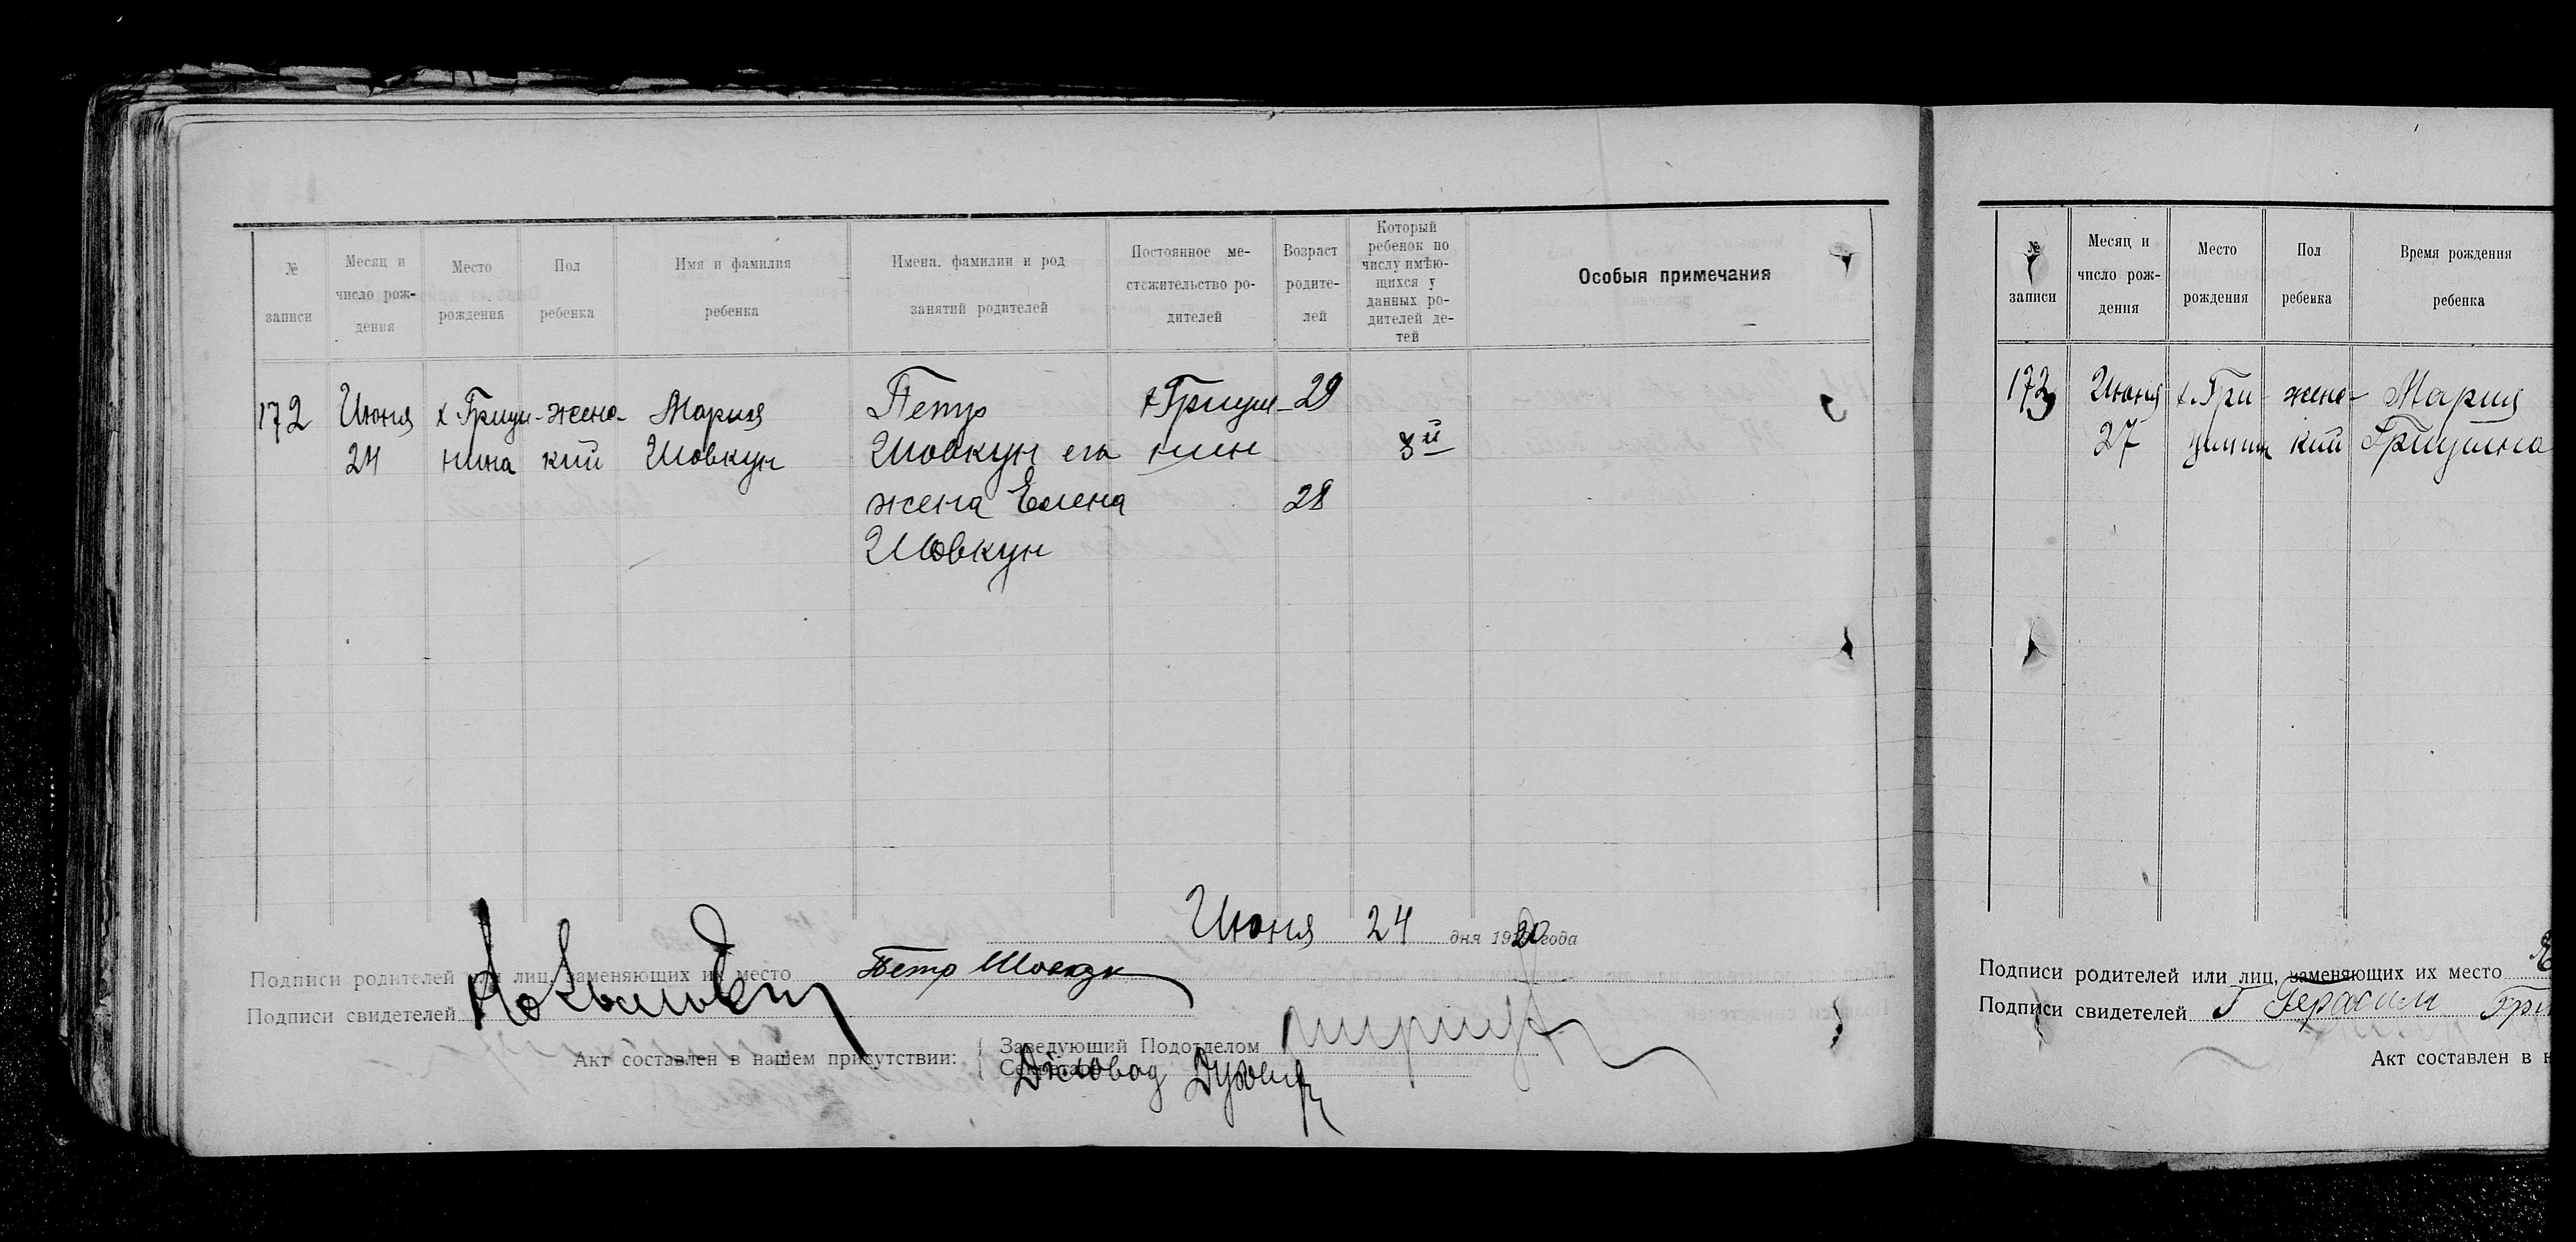 № записи
Месяц и число рождения
Место рождения
Пол ребенка
Имя и фамилия ребенка
Имена. фамилии и род занятий родителей
Постоянное местожительство родителей
Возраст родителей
Который ребенок по числу имѣющихся у данных родителей детей
Особыя примечания
172 Июня х. Грицы- жена- Мария Петр х Грицы- 29
24 нина кий Шовкун Шовкун его нин 3й
жена Елена 28
Шовкун
Июня 24 дня 1920 года
Подписи родителей или лиц, заменяющих их место Петр Шовкун
Подписи свидетелей
Акт составлен в нашем присутствии: Заведующий Подотделом
Секретарь
Діловод
№ записи
Месяц и число рождения
Место рождения
Пол ребенка
Время рождения ребенка
173 Июня х. Гри- жена- Мария
27 кий Грицина
Подписи родителей или лиц, заменяющих их место
Подписи свидетелей Г Герасим Гри
Акт составлен в н